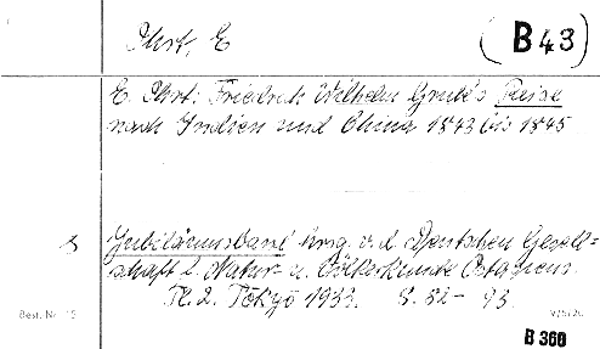 Ihrt, E (B 43)
E. Ihrt: Friedrich Wilhelm Grube's Reise
nach Indien und China 1843 bis 1845
S Jubiläumsband hrsg. v. d. Deutschen Gesell=
schaft f. Natur= u. Völkerkunde Ostasiens.
Tl. 2. Tōkyō 1933. S. 82-93.
Best. Nr. 15
B 360